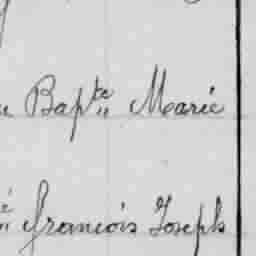 Bapte Marie
François Joseph